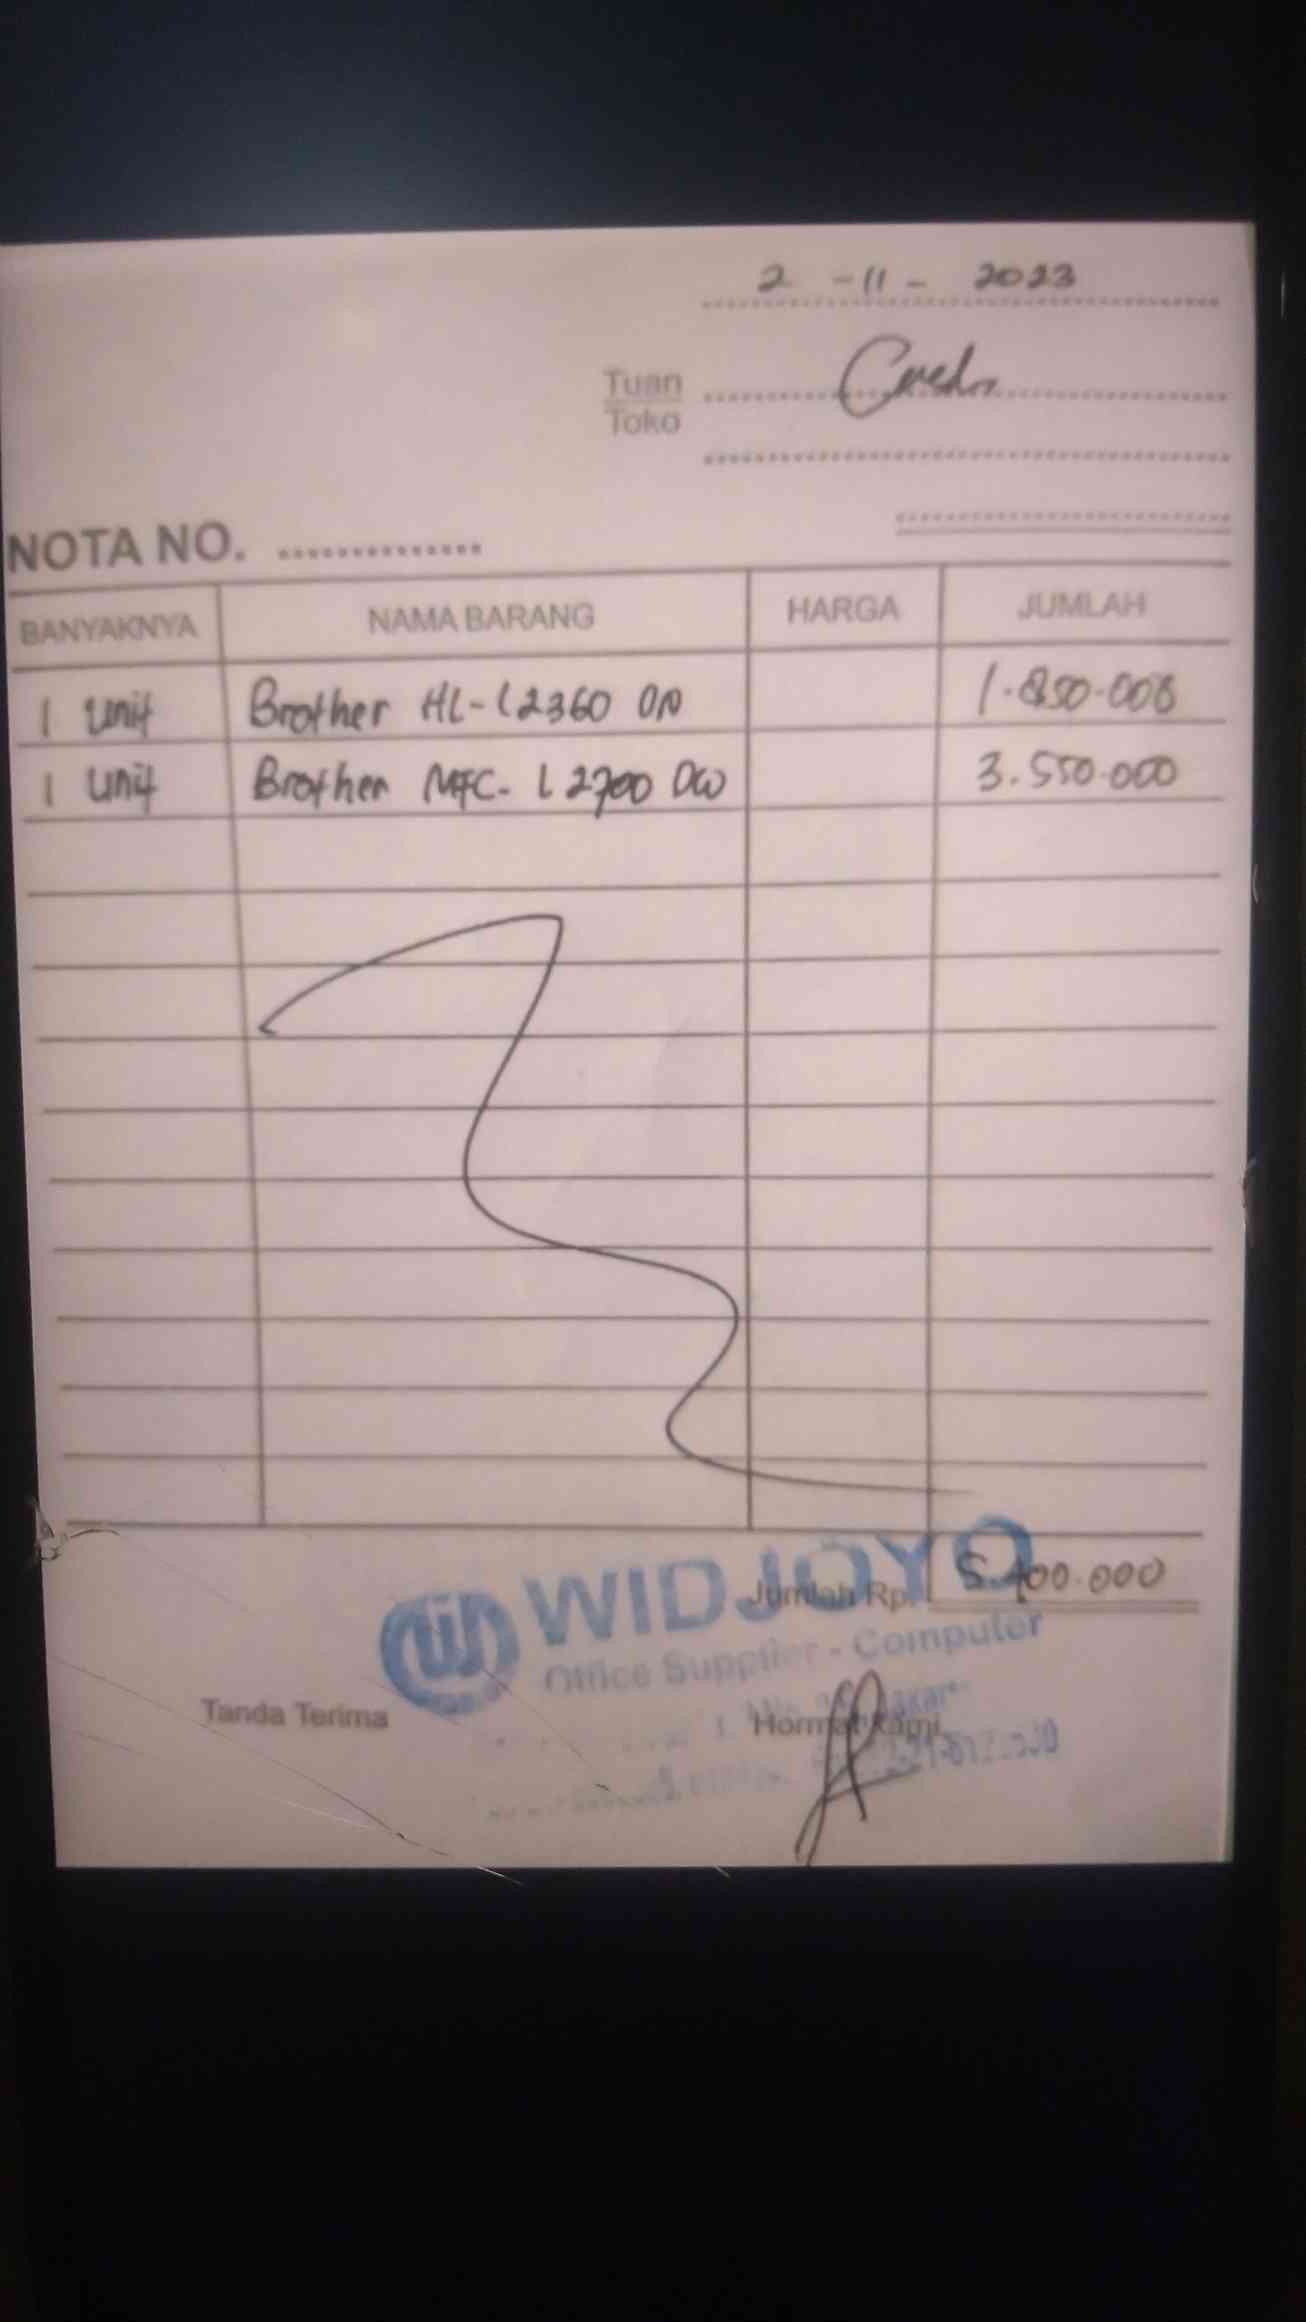 2 - 11 - 2023
Tuan
Toko
NOTA NO. ..............
BANYAKNYA NAMA BARANG HARGA JUMLAH
1 Unit Brother HL-L2360 DN 1.850.000
1 Unit Brother MFC-L2700 DW 3.550.000
Jumlah Rp. 5.400.000
WIDJOYO
Office Supplier - Computer
Tanda Terima Hormat Kami,